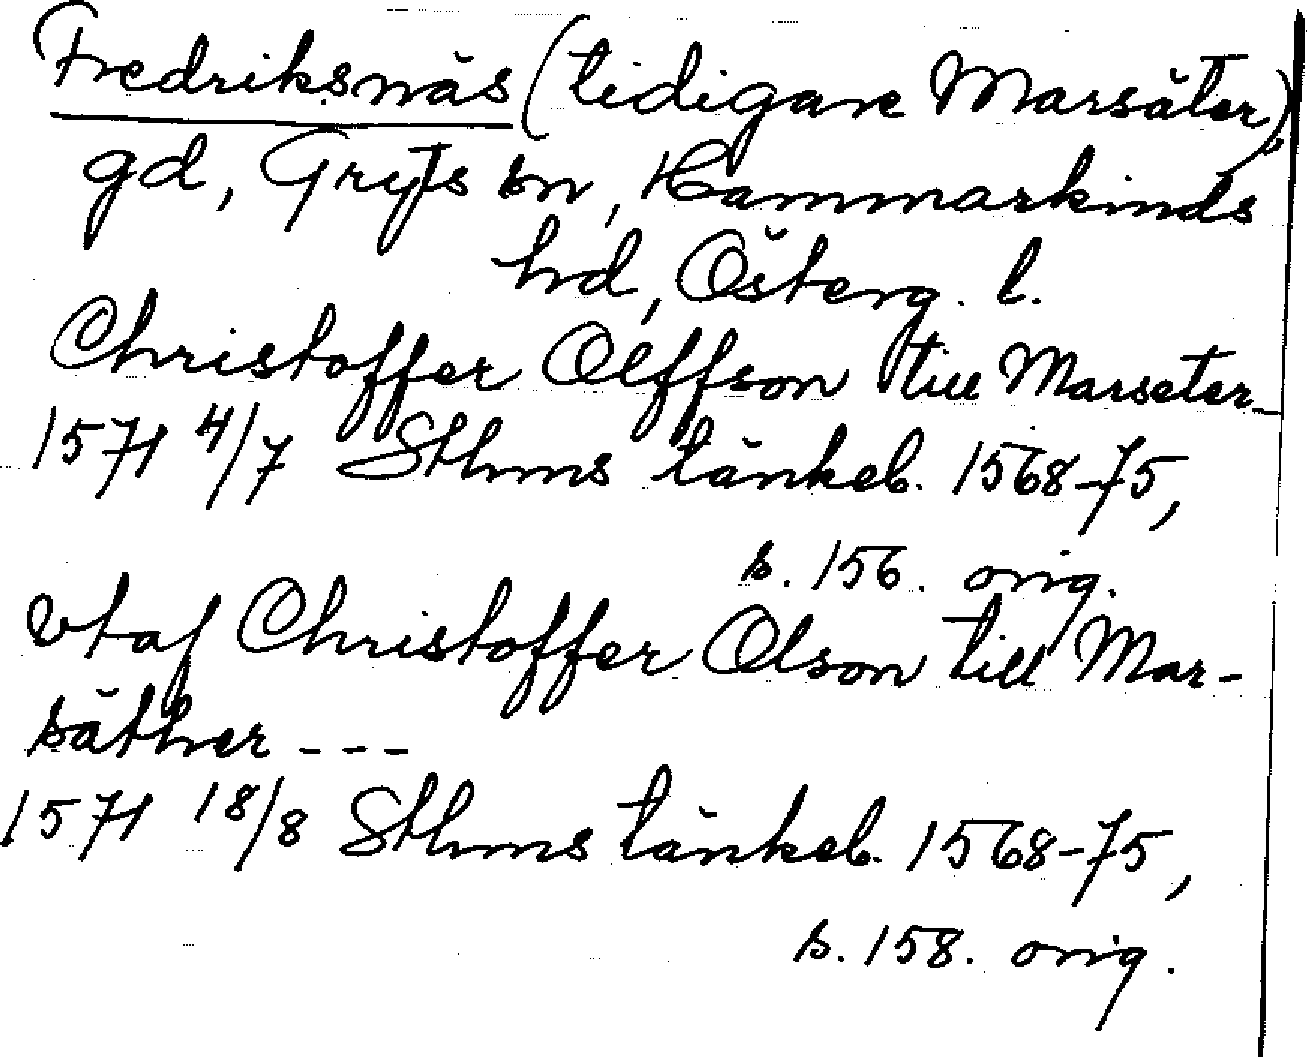 Fredriksnäs (tidigare Marsäter),
gd, Gryts sn, Hammarkinds
hd, Österg. l.
Christoffer Olffson till Marseter
1571 4/7 Sthms tänkeb. 1568-75,
s. 156. orig.
vtaf Christoffer Olson till Mar-
säther - - -
1571 18/8 Sthms tänkeb. 1568-75,
s. 158. orig.